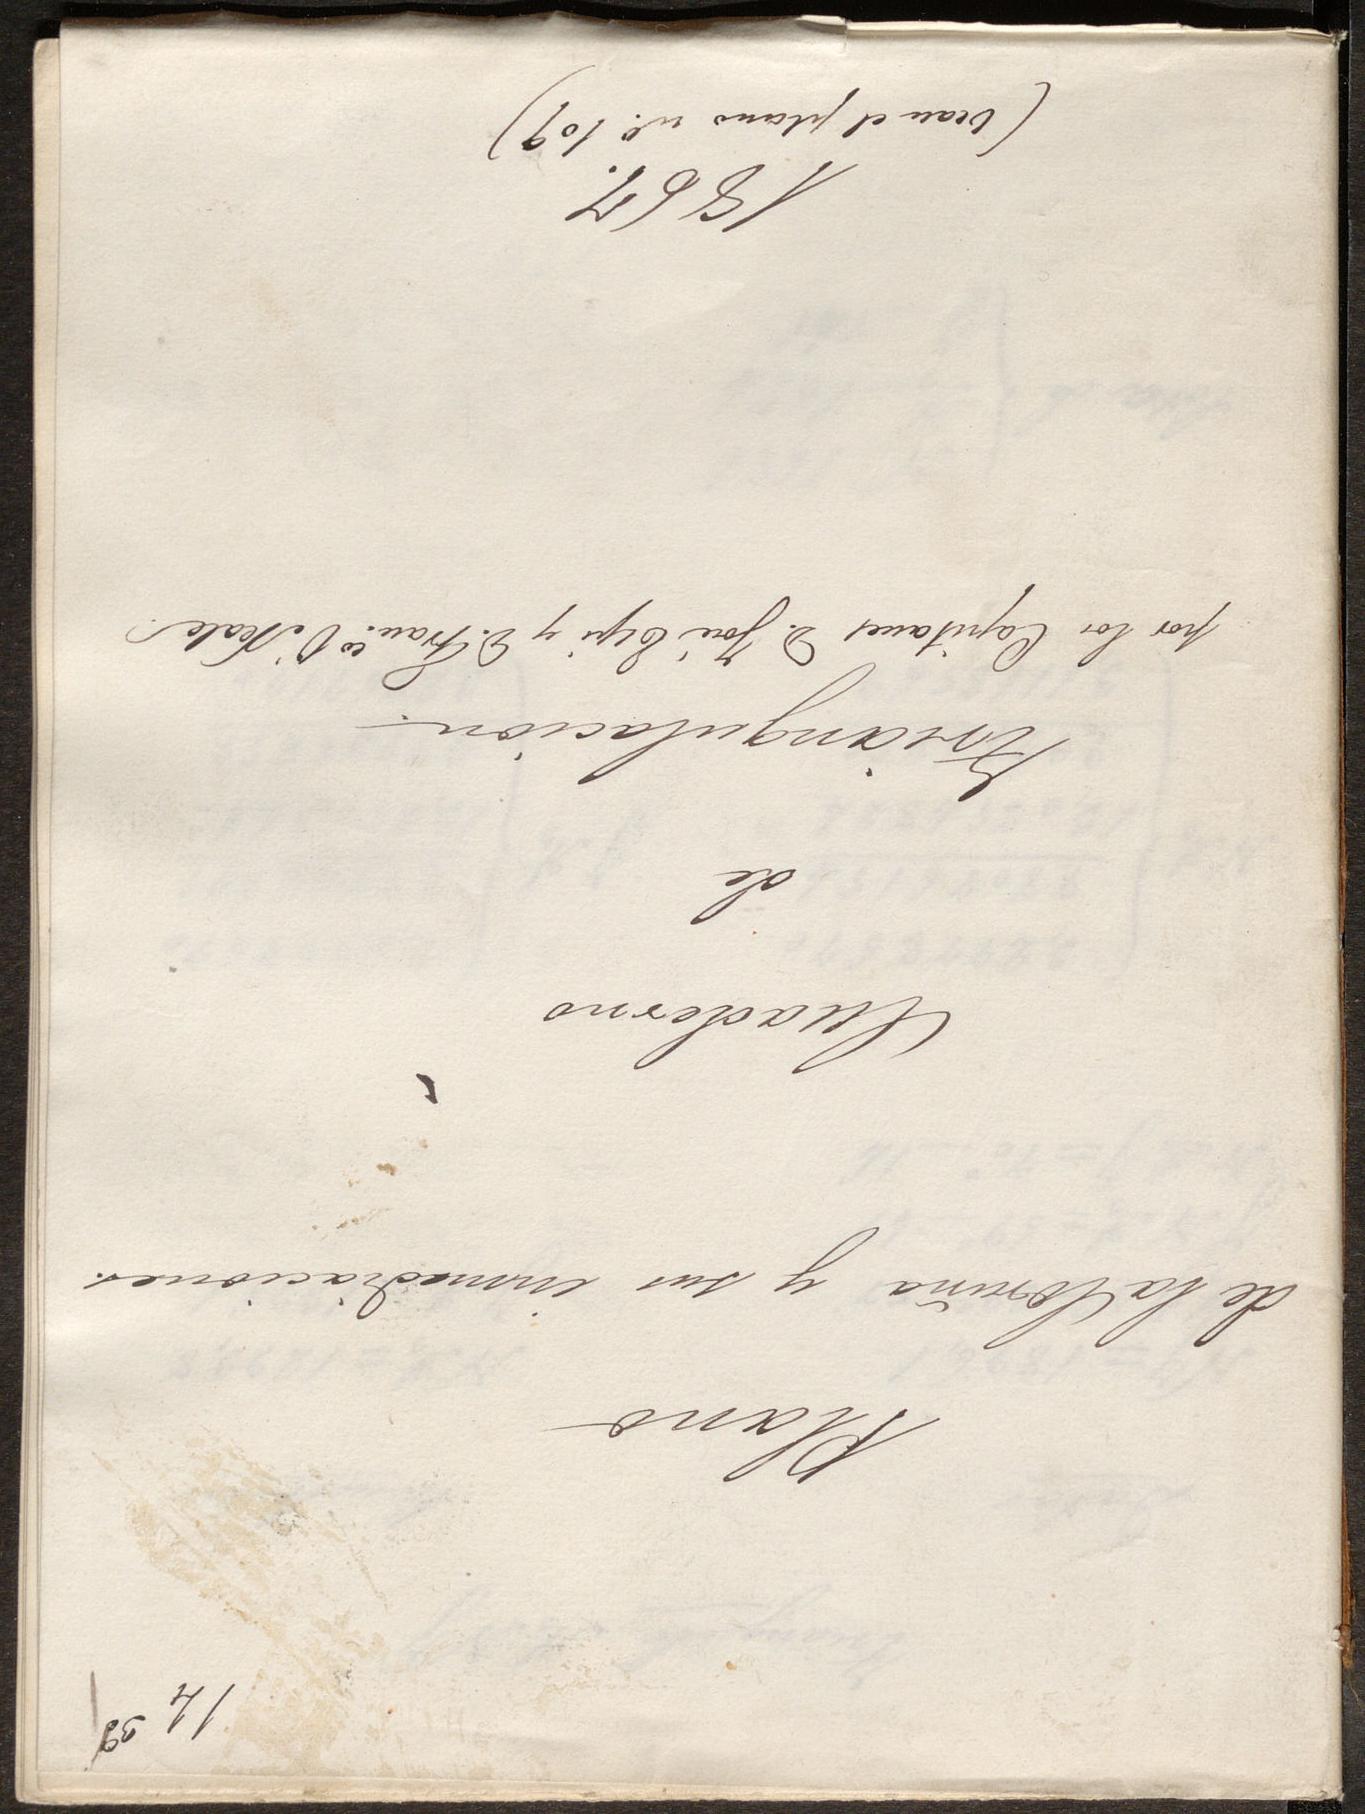 14
Plano
de la Coruña y sus inmediaciones.
Cuaderno
de
Triangulacion.
por los Capitanes D. José y D. Fran.co
1867.
(vease el plano nº 109)